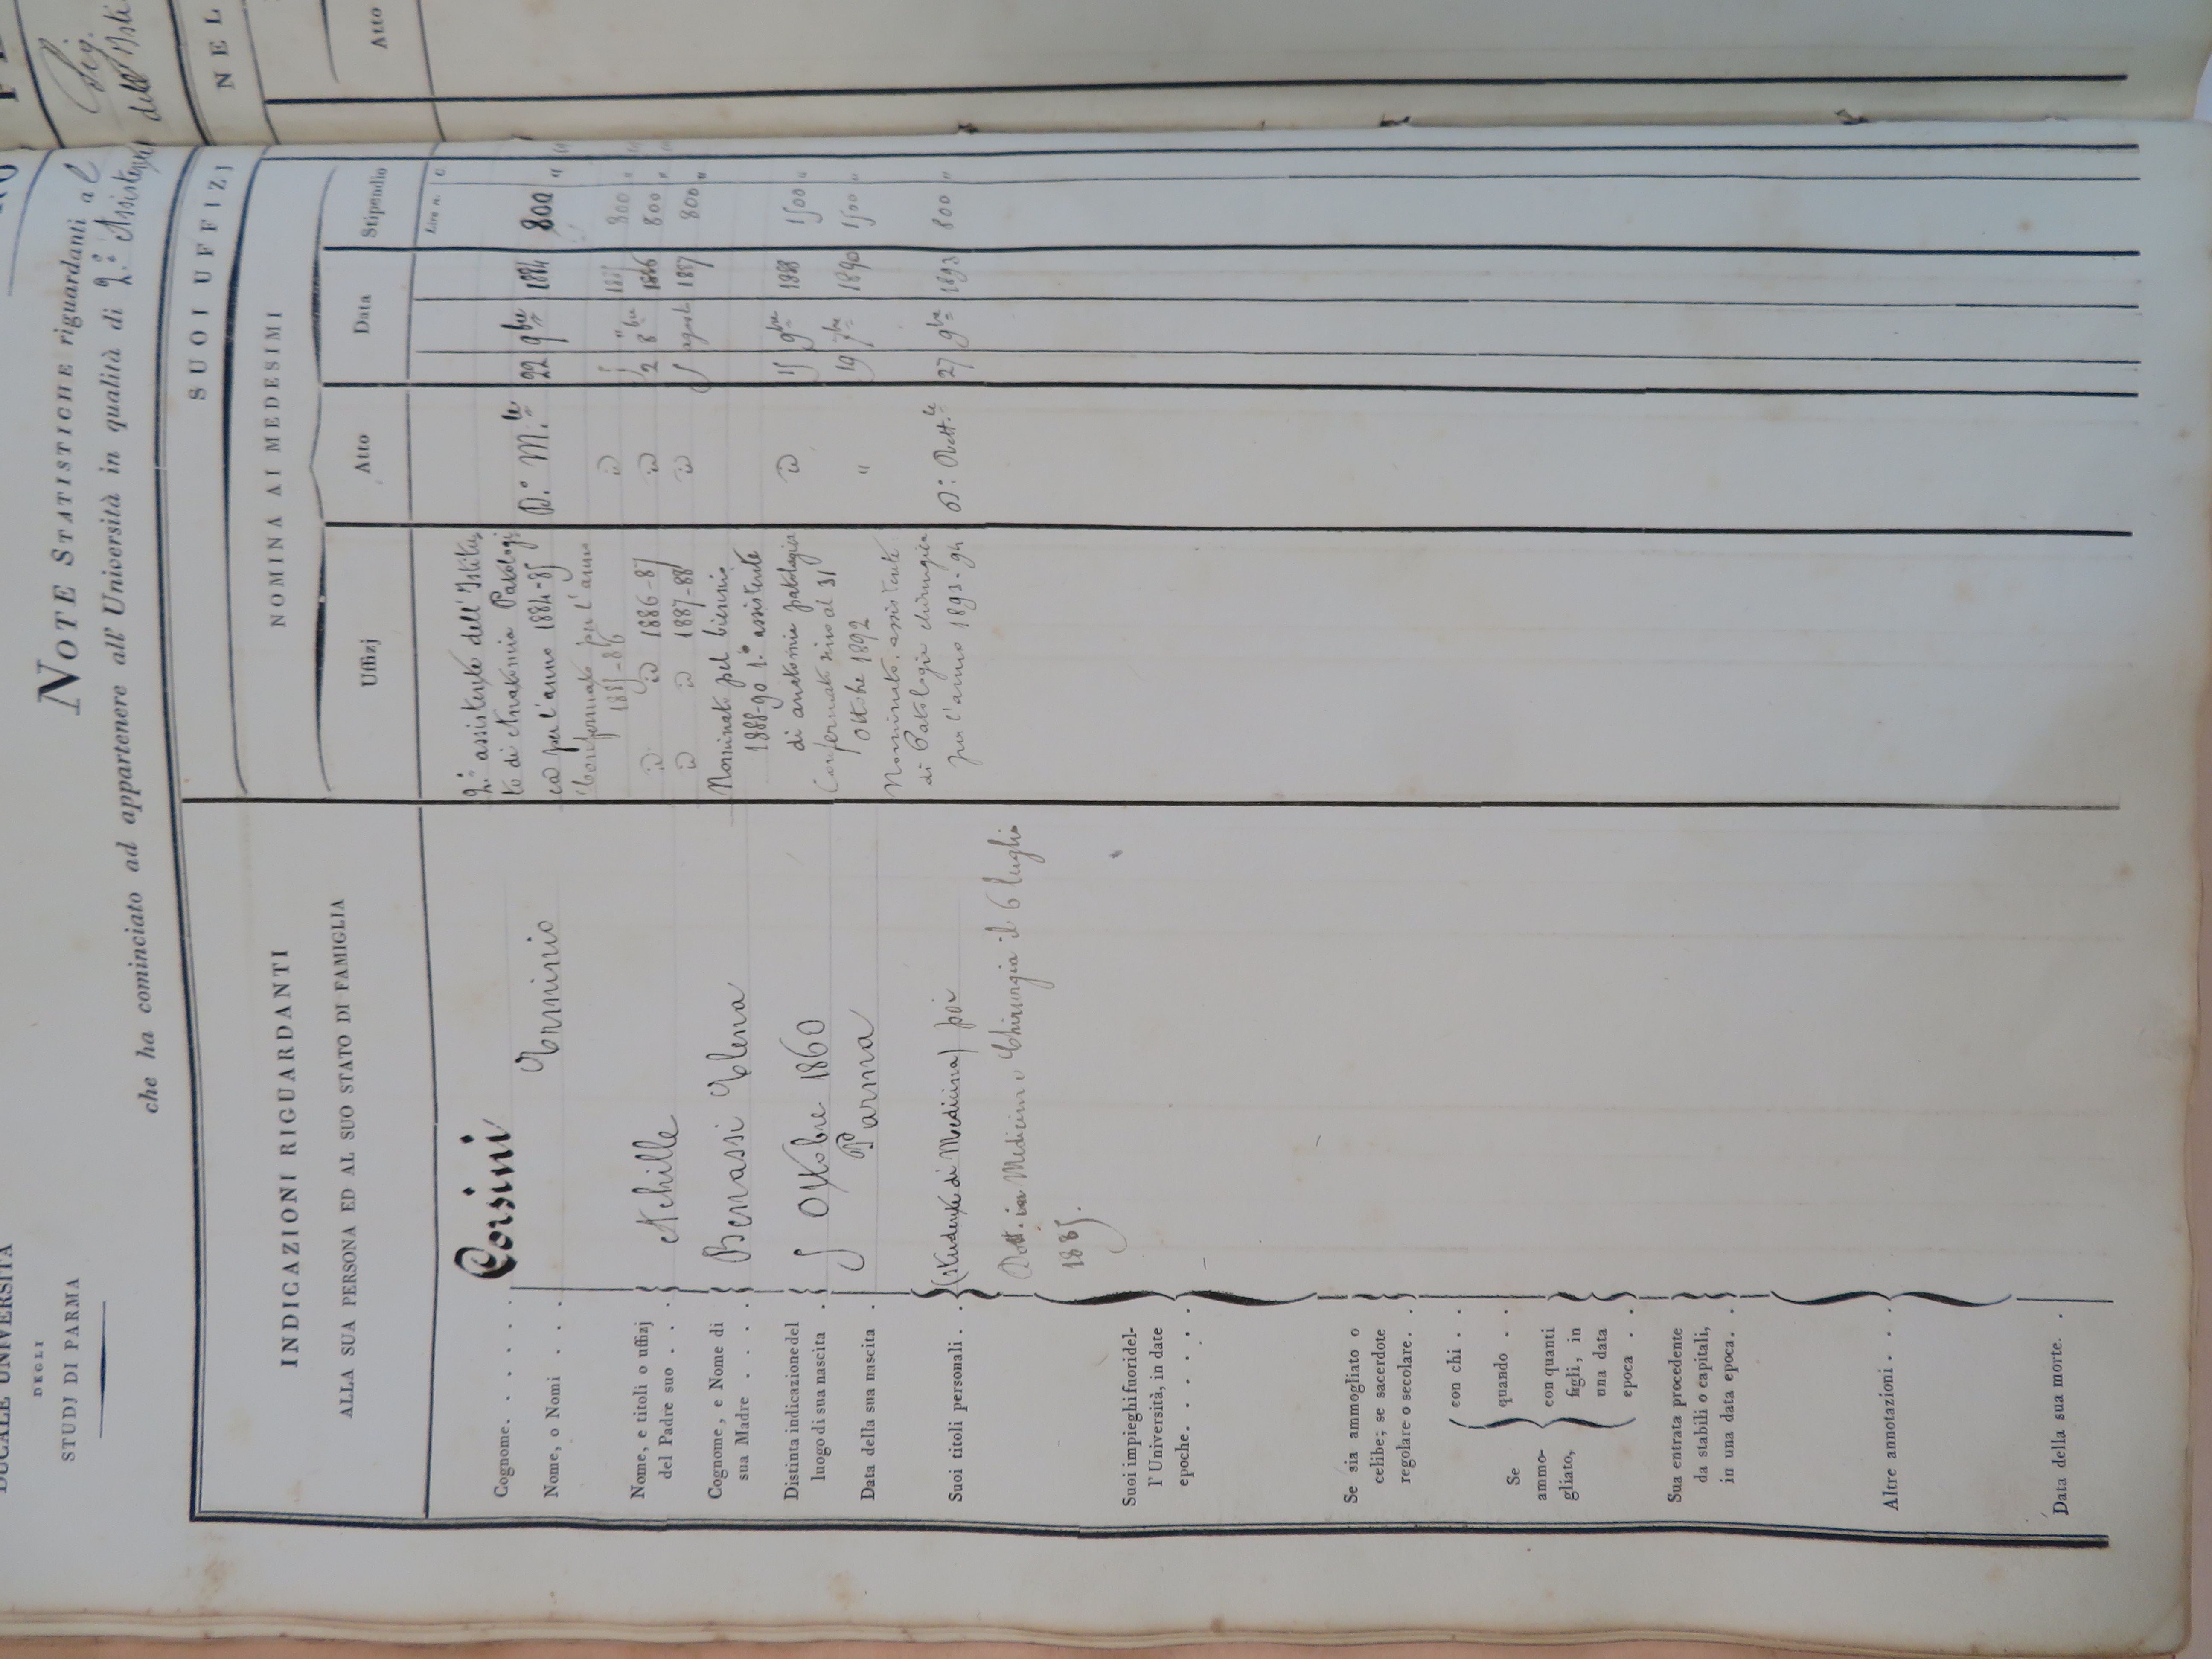 DUCALE UNIVERSITÀ
DEGLI
STUDJ DI PARMA
NOTE STATISTICHE riguardanti al
che ha cominciato ad appartenere all'Università in qualità di 2.° Assistente
Sig.
dell'Isti
INDICAZIONI RIGUARDANTI
ALLA SUA PERSONA ED AL SUO STATO DI FAMIGLIA
Cognome. . . . . Corsini
Nome, o Nomi . . Erminio
Nome, e titoli o uffizj
del Padre suo . . . Achille
Cognome, e Nome di
sua Madre . . . . Benassi Elena
Distinta indicazione del
luogo di sua nascita . 5 Ottobre 1860
Data della sua nascita . Parma
Suoi titoli personali . (studente di Medicina) poi
Dott. in Medicina e Chirurgia il 6 luglio
1885.
Suoi impieghi fuori del-
l'Università, in date
epoche. . . . . .
Se sia ammogliato o
celibe; se sacerdote
regolare o secolare. .
Se
ammo-
gliato,
con chi . .
quando . .
con quanti
figli, in
una data
epoca . .
Sua entrata procedente
da stabili o capitali,
in una data epoca. .
Altre annotazioni . . .
Data della sua morte. .
SUOI UFFIZJ
NOMINA AI MEDESIMI
Uffizj
Atto
Data
Stipendio
Lire n. c.
2.° assistente dell'Istitu
to di Anatomia Patologi
ca per l'anno 1884-85 D.° M.le 22 9bre 1884 800 "
Confermato per l'anno
1885-86 id 5 " 1885 800 "
id id 1886-87 id 2 8bre 1886 800 "
id id 1887-88 id 5 agosto 1887 800 "
Nominato pel biennio
1888-90 1.° assistente
di anatomia patologica id 15 9bre 1888 1500 "
Confermato sino al 31
Ottobre 1892 " 19 7bre 1890 1500 "
Nominato assistente
di Patologia chirurgica
per l'anno 1893-94 D.° Rett.le 27 9bre 1893 800 "
NEL
Atto